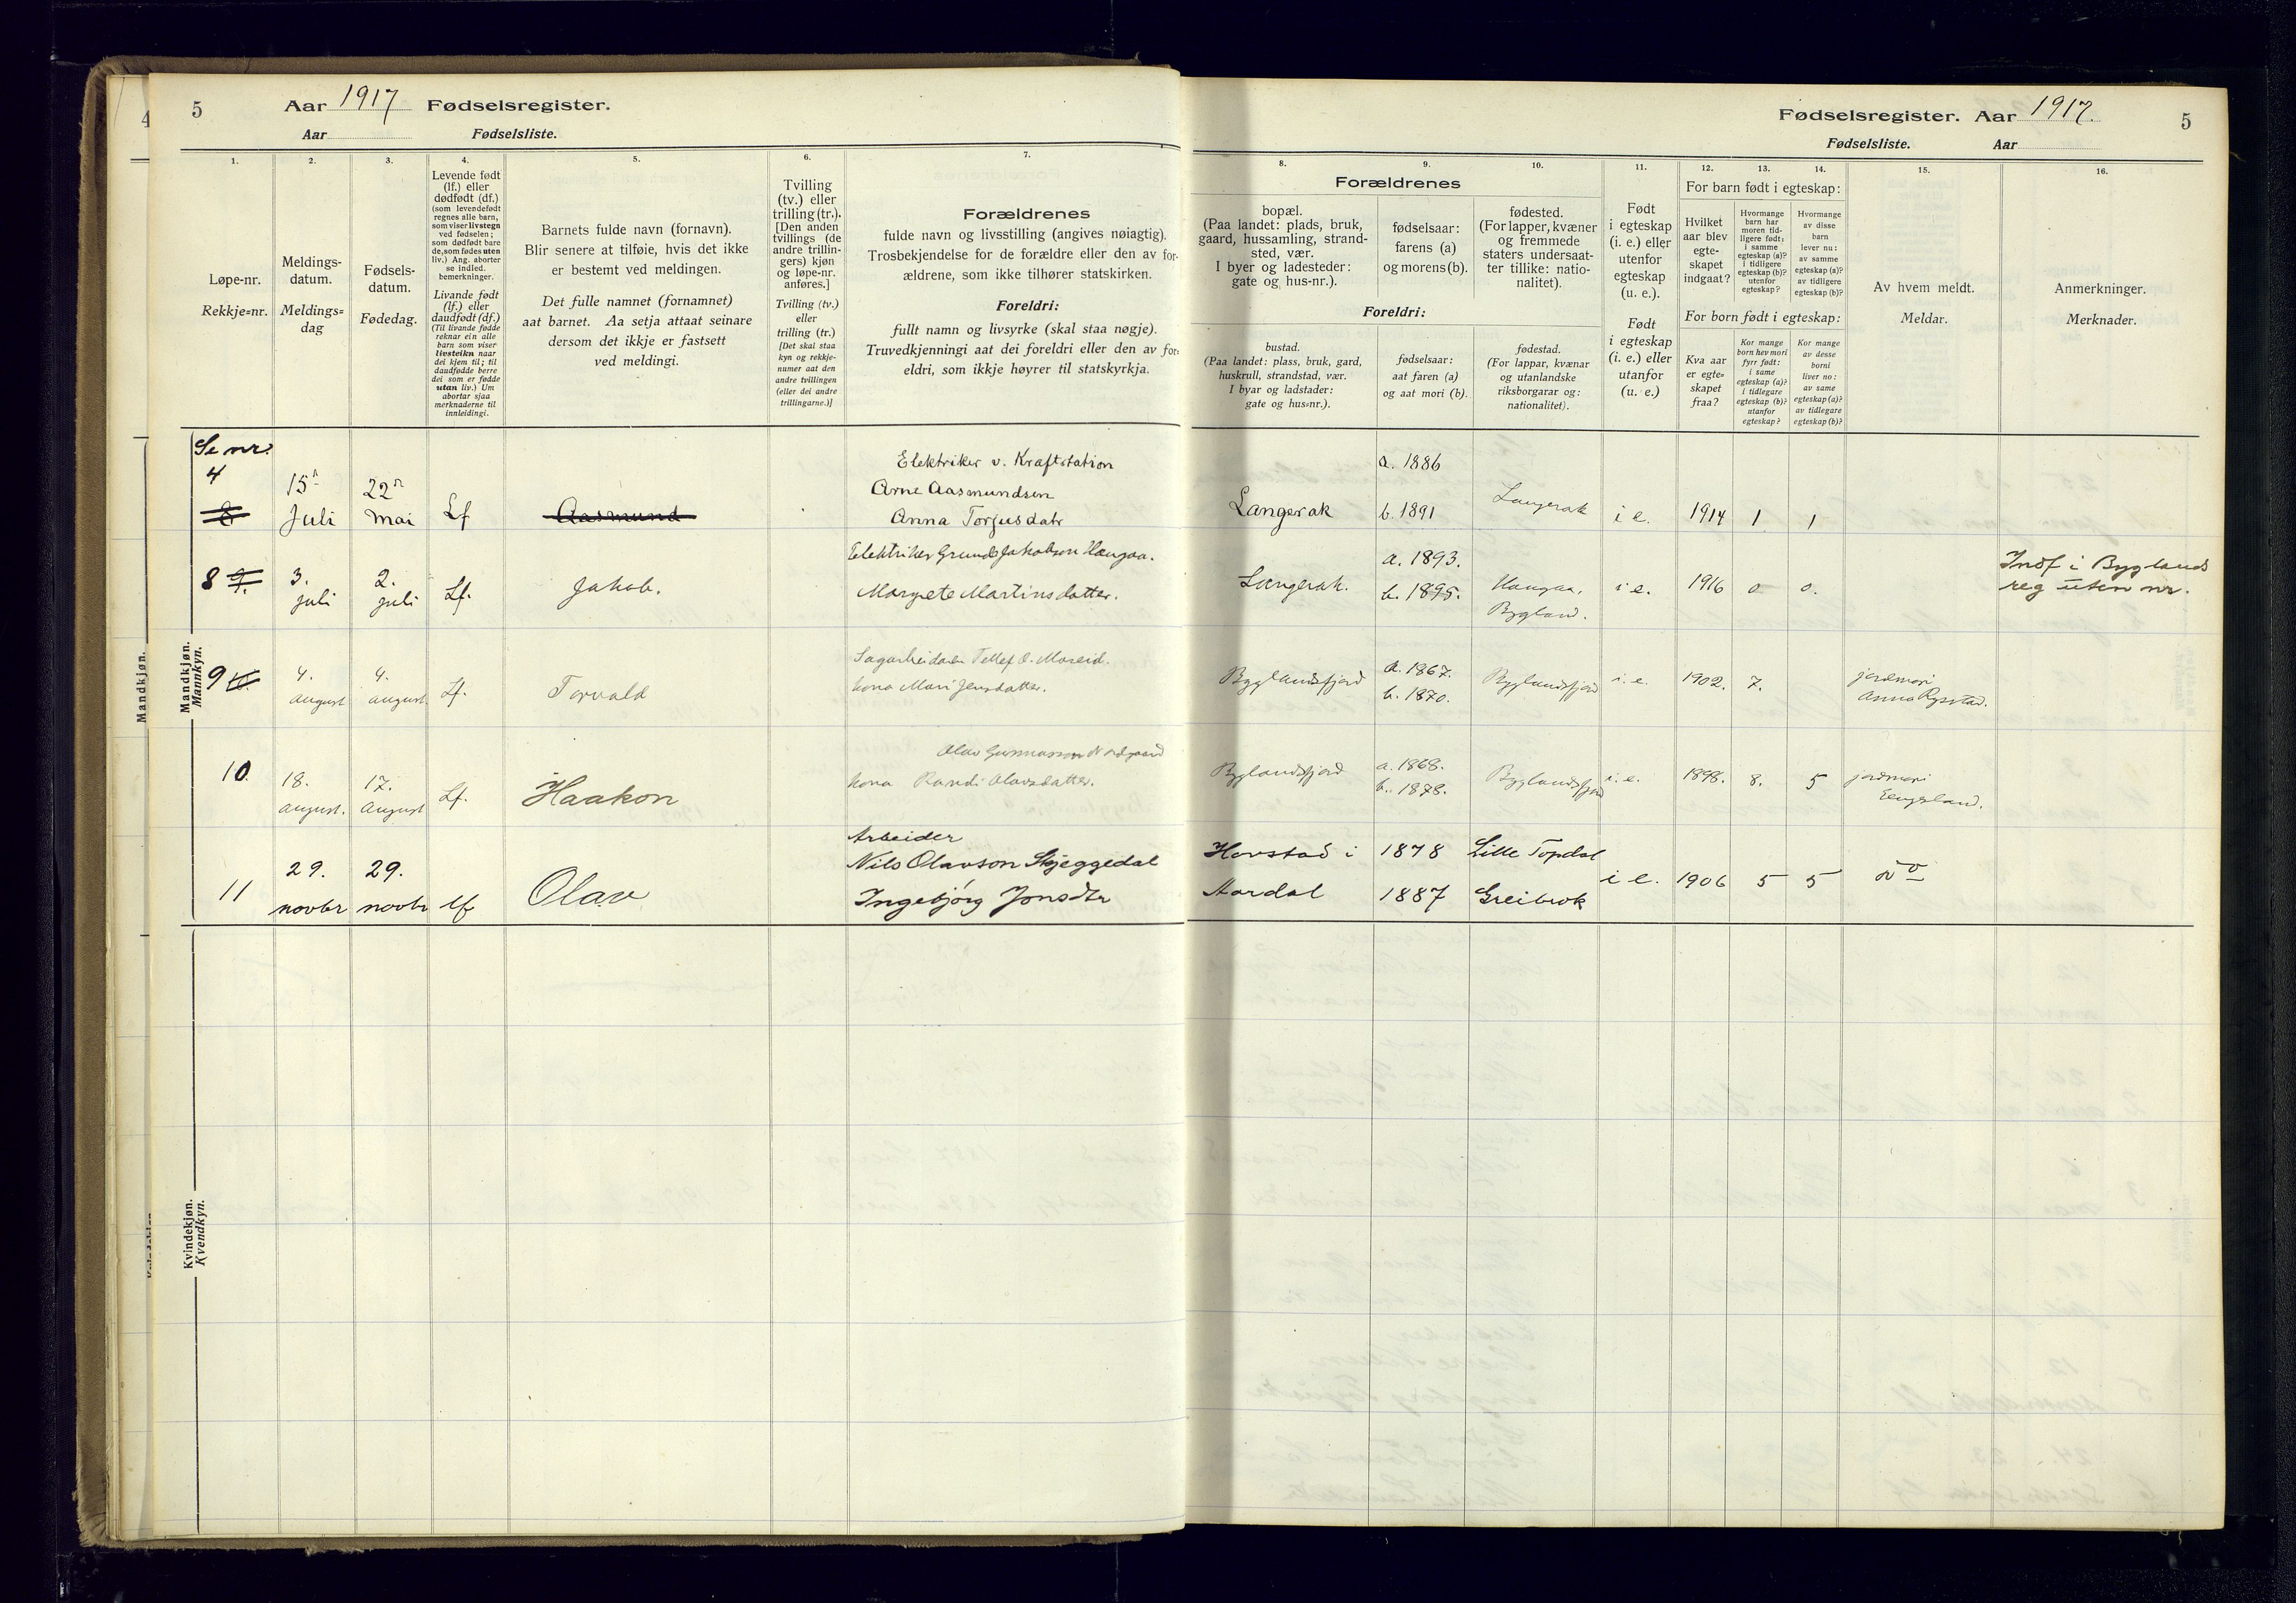 5
Aar 1917 Fødselsregister.
Aar Fødselsliste.
1.
2.
3.
4.
5.
6.
7.
Løpe-nr.
Rekkje-nr.
Meldings-
datum.
Meldings-
dag
Fødsels-
datum.
Fødedag.
Levende født
(lf.) eller
dødfødt (df.)
(som levendefødt
regnes alle barn,
som viser livstegn
ved fødselen;
som dødfødt bare
de, som fødes uten
liv.) Ang. aborter
se indled.
bemerkninger.
Livande født
(lf.) eller
daudfødt (df.)
(Til livande fødde
reknar ein alle
barn som viser
livsteikn naar
dei kjem til; til
daudfødde berre
dei som er fødde
utan liv.) Um
abortar sjaa
merknaderne til
innleidingi.
Barnets fulde navn (fornavn).
Blir senere at tilføie, hvis det ikke
er bestemt ved meldingen.
Det fulle namnet (fornamnet)
aat barnet. Aa setja attaat seinare
dersom det ikkje er fastsett
ved meldingi.
Tvilling
(tv.) eller
trilling (tr.).
[Den anden
tvillings (de
andre trillin-
gers) kjøn
og løpe-nr.
anføres.]
Tvilling (tv.)
eller
trilling (tr.)
[Det skal staa
kyn og rekkje-
numer aat den
andre tvillingen
(eller dei andre
trillingarne.)]
Forældrenes
fulde navn og livsstilling (angives nøiagtig).
Trosbekjendelse for de forældre eller den av for-
ældrene, som ikke tilhører statskirken.
Foreldri:
fullt namn og livsyrke (skal staa nøgje).
Truvedkjenningi aat dei foreldri eller den av for-
eldri, som ikkje høyrer til statskyrkja.
Fødselsregister. Aar 1917.
5
Fødselsliste. Aar
8.
9.
10.
11.
12.
13.
14.
15.
16.
Forældrenes
bopæl.
(Paa landet: plads, bruk,
gaard, hussamling, strand-
sted, vær.
I byer og ladesteder:
gate og hus-nr.).
fødselsaar:
farens (a)
og morens (b).
fødested.
(For lapper, kvæner
og fremmede
staters undersaat-
ter tillike: natio-
nalitet).
Foreldri:
bustad.
(Paa landet: plass, bruk, gard,
huskrull, strandstad, vær.
I byar og ladstader:
gate og hus-nr.).
fødselsaar:
aat faren (a)
og aat mori (b).
fødestad.
(For lappar, kvænar
og utanlandske
riksborgarar og:
nationalitet).
Født
i egteskap
(i. e.) eller
utenfor
egteskap
(u. e.).
Født
i egteskap
(i. e.) eller
utanfor
(u. e.)
For barn født i egteskap:
Hvilket
aar blev
egte-
skapet
indgaat?
Hvormange
barn har
moren tid-
ligere født:
i samme
egteskap (a)?
i tidligere
egteskap (b)?
utenfor
egteskap?
Hvormange
av disse
barn
lever nu:
av samme
egteskap (a)?
av tidligere
egteskap (b)?
For born født i egteskap:
Kva aar
er egte-
skapet
fraa?
Kor mange
born hev mori
fyrr født:
i same
egteskap (a)?
i tidlegare
egteskap (b)?
utanfor
egteskap?
Kor mange
av desse
borni
liver no:
av same
egteskap (a)?
av tidlegare
egteskap (b)?
Av hvem meldt.
Meldar.
Anmerkninger.
Merknader.
Mandkjøn.
Mannkyn.
Se nr.
4
8
15n
Juli
22n
Mai
Lf
Aasmund
Elektriker v. Kraftstation
Arne Aasmundsen
Anna Torjusdatr
Langerak
a. 1886
b. 1891
Langerak
i e.
1914
1
1
8 9.
3.
juli
2.
juli
Lf.
Jakob.
Elektriker Grunds Jakobson Haugaa.
Margrete Martinsdatter.
Langerak.
a. 1893.
b. 1895.
Haugaa,
Bygland.
i e.
1916
0
0.
Indf i Byglands
reg uten nr.
9 10.
4.
august
4.
august.
Lf.
Torvald
Sagarbeidaren Tellef O. Moseid.
kona Mari Jensdatter.
Byglandsfjord
a. 1867.
b. 1870.
Byglandsfjord
i. e.
1902.
7.
jordmori
Anna Rysstad.
10.
18.
august.
17.
August
Lf.
Haakon
Olav Gunnarson Nordgaard
kona Randi Olavsdatter.
Byglandsfjord
a. 1868.
b. 1878.
Byglandsfjord
i. e.
1898.
8.
5
jordmori
11
29.
novbr
29.
novbr
lf
Olav
Arbeider
Nils Olavson Skjeggedal
Ingebjórg Jonsdtr
Horstad i
Aardal
1878
1887
Lille Topdal
Greibrok
i e.
1906
5
5
do
Kvindekjøn.
Kvendkyn.
4
Mandkjøn.